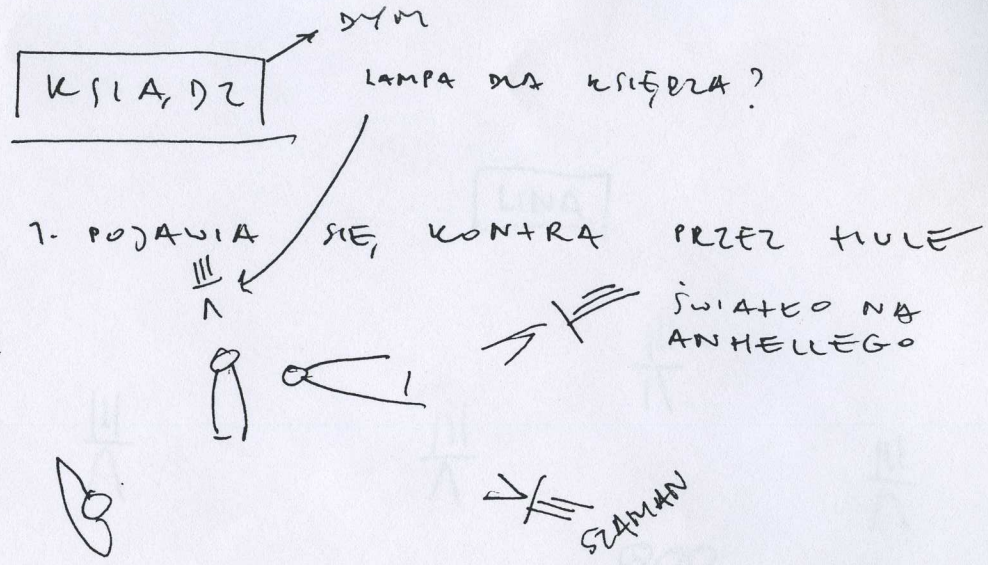 DYM
KSIĄDZ
LAMPA DLA KSIĘDZA?
1. POJAWIA SIĘ, KONTRA PRZEZ TIULE
ŚWIATŁO NA
ANHELLEGO
SZAMAN